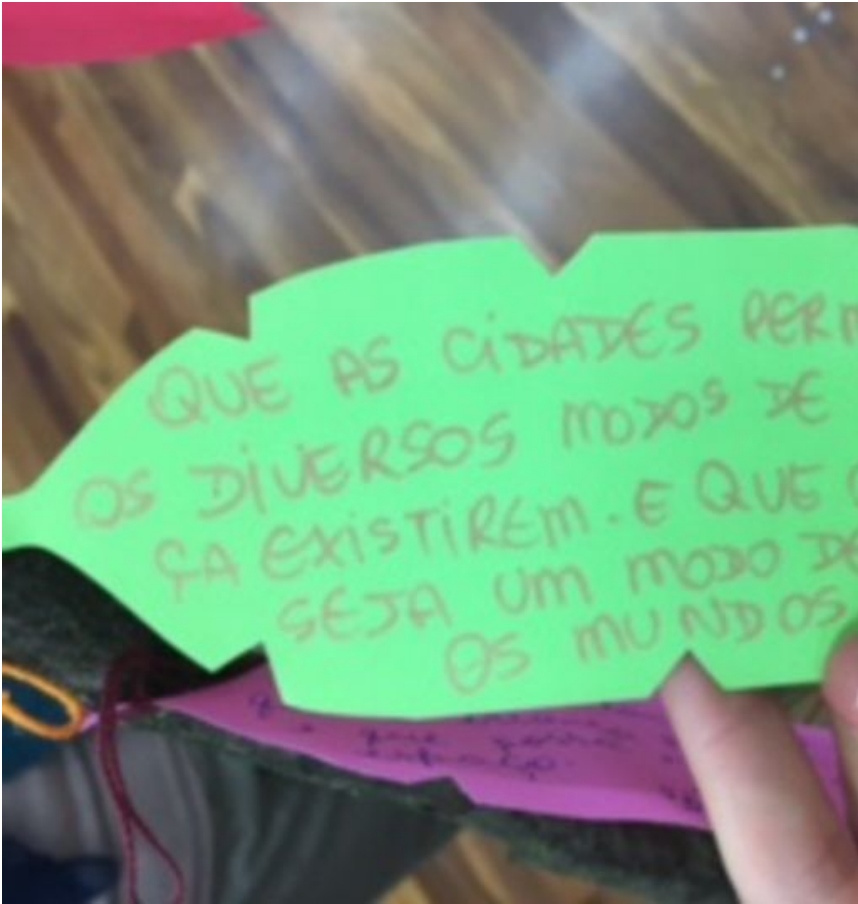 QUE AS CIDADES PERM
OS DIVERSOS MODOS DE
ÇA EXISTIREM. E QUE
SEJA UM MODO DE
OS MUNDOS
que
espaço.